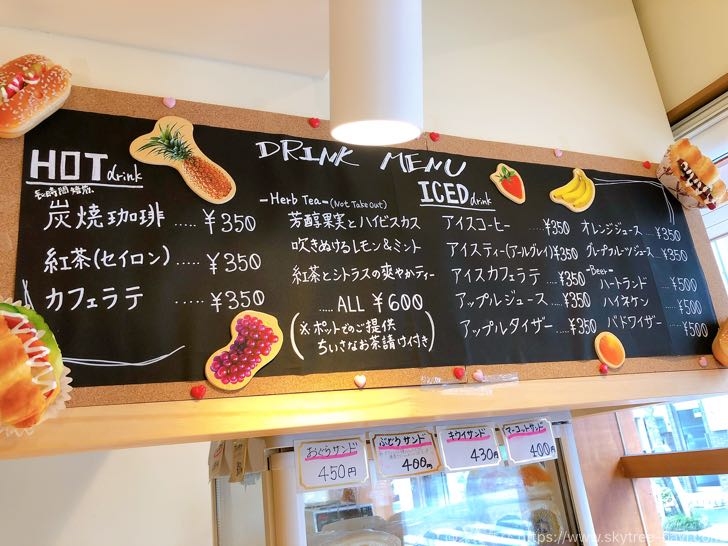 DRINK MENU
HOT drink
長時間焙煎
炭焼珈琲 ..... ¥350
紅茶(セイロン) ..... ¥350
カフェラテ ..... ¥350
-Herb Tea- (Not Take out)
芳醇果実とハイビスカス
吹きぬけるレモン&ミント
紅茶とシトラスの爽やかティー
..... ALL ¥600
(※ポットでのご提供
ちいさなお茶請け付き)
ICED drink
アイスコーヒー ..... ¥350
アイスティー(アールグレイ) ¥350
アイスカフェラテ ..... ¥350
アップルジュース ..... ¥350
アップルタイザー ..... ¥350
オレンジジュース ..... ¥350
グレープフルーツジュース ... ¥350
-Beer-
ハートランド ..... ¥500
ハイネケン ..... ¥500
バドワイザー ..... ¥500
おぐらサンド
450円
ぶどうサンド
400円
キウイサンド
430円
マーコットサンド
400円
https://www.skytree-navi.com